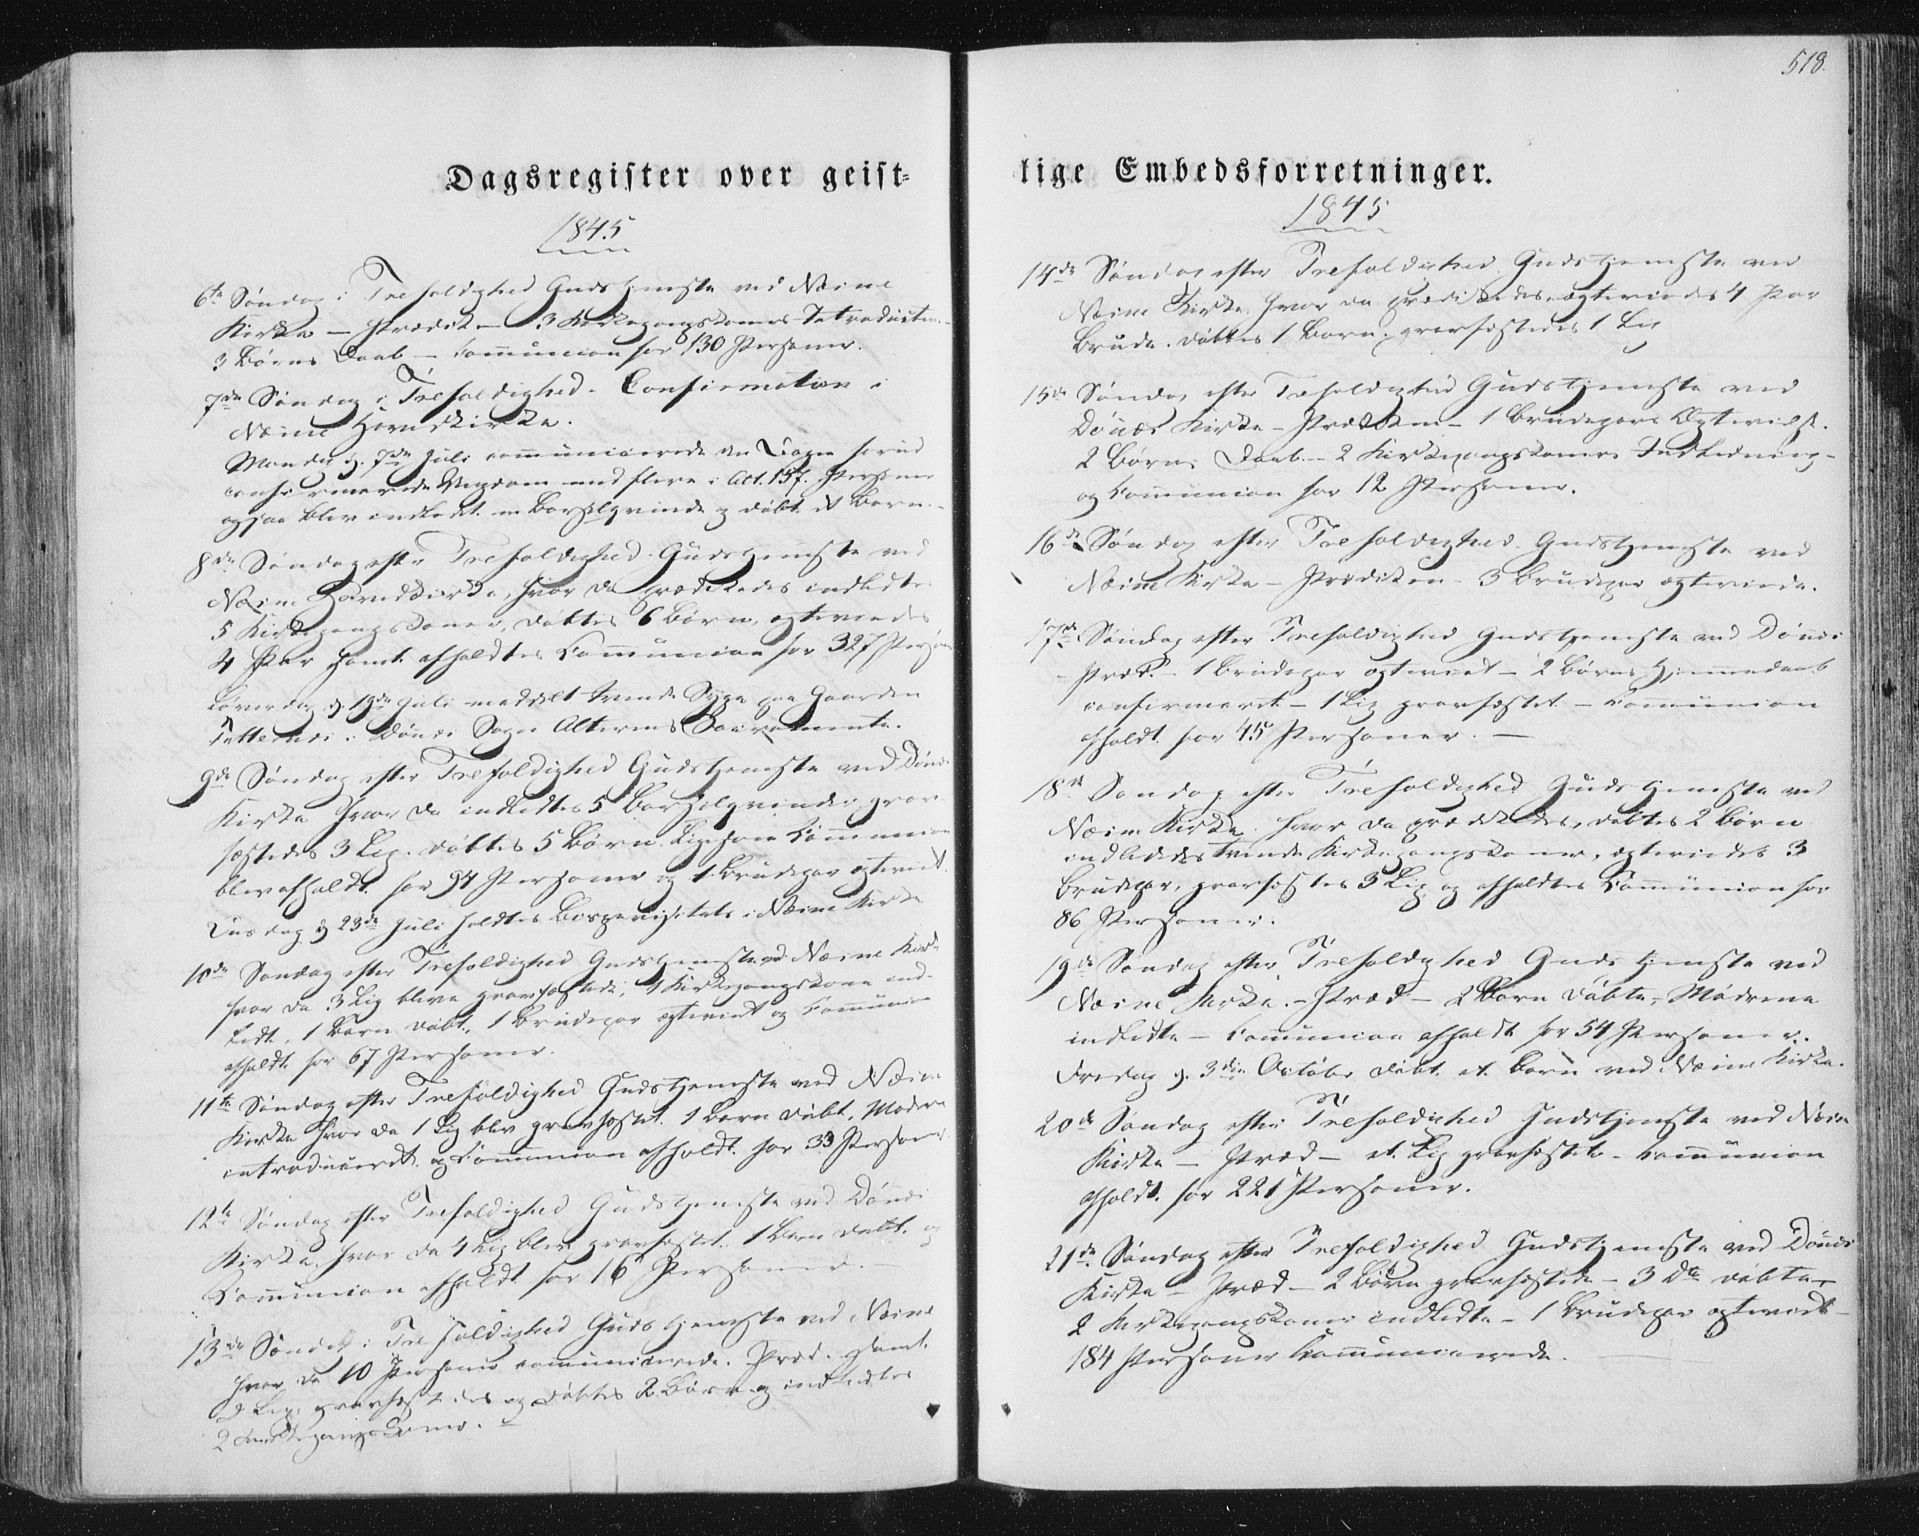 518.
Dagsregister over geist-
lige Embedsforretninger.
1845
6te Søndag i Trefoldighed Gudstjeneste ved Næsne
Kirke – Prædik – 3 Kirkegangskoners Introduction
3 Børns Daab – Communion for 130 Personer.
7de Søndag i Trefoldighed. Confirmation i
Næsne Hovedkirke.
Mandag d. 7de Juli communicerede den Dagen forud
confirmerede Ungdom med flere i Alt 157 Personer
ogsaa blev indledt en Barselqvinde og døbt et Barn.
8de Søndag efter Trefoldighed Gudstjeneste ved
Næsne Hovedkirke, hvor da prædikedes indledtes
5 Kirkegangskoner, døbtes 6 Børn, egteviedes
4 Par samt afholdtes Communion for 327 Personer
Løverdag d. 19de Juli meddelt trende Syge paa Gaarden
i Dønæs Sogn Alterens Sacramente.
9de Søndag efter Trefoldighed Gudstjeneste ved Dønæs
Kirke hvor da indledtes 5 Barselqvinder, grav-
fæstedes 3 Lig. døbtes 5 Børn. Ligesom Communion
blev afholdt for 94 Personer og 1 Brudepar egteviet
Onsdag d. 23de Juli holdtes Bispevisitats i Næsne Kirke
10de Søndag efter Trefoldighed Gudstjeneste ved Næsne Kirke
hvor da 3 Lig bleve gravfæstede, 1 Kirkegangskone ind-
ledt, 1 Barn døbt, 1 Brudepar egteviet og Communion
afholdt for 67 Personer.
11te Søndag efter Trefoldighed Gudstjeneste ved Næsne
Kirke hvor da 1 Lig blev gravfæstet. 1 Barn døbt, Moderen
introduceret og Communion afholdt for 33 Personer
12te Søndag efter Trefoldighed Gudstjeneste ved Dønæs
Kirke, hvor da 4 Lig blev gravfæstet. 1 Barn døbt. og
Communion afholdt for 16 Personer. –
13de Søndag i Trefoldighed Gudstjeneste ved Næsne
hvor da 10 Personer communicerede. Præd. samt
Lig gravfæstedes og døbtes 2 Børn og indledtes
2 Kirkegangskoner. –
1845
14de Søndag efter Trefoldighed Gudstjeneste ved
Næsne Kirke, hvor da prædikedes, egteviedes 4 Par
Brude. døbtes 1 Barn, gravfæstedes 1 Lig
15de Søndag efter Trefoldighed Gudstjeneste ved
Dønæs Kirke – Prædiken – 1 Brudepars Egtevielse.
2 Børns Daab – 2 Kirkegangskoners Indledning –
og Communion for 12 Personer.
16de Søndag efter Trefoldighed Gudstjeneste ved
Næsne Kirke – Prædiken – 3 Brudepar egteviede.
17de Søndag efter Trefoldighed Gudstjeneste ved Dønæs
Præd. – 1 Brudepar egteviet – 2 Børns Hjemmedaab
confirmeret – 1 Lig gravfæstet – Communion
afholdt for 45 Personer. –
18de Søndag efter Trefoldighed Gudstjeneste ved
Næsne Kirke. hvor da prædikedes, døbtes 2 Børn
indledtes trende Kirkegangskoner, egteviedes 3
Brudepar, gravfæstes 3 Lig og afholdtes Communion for
86 Personer.
19de Søndag efter Trefoldighed Gudstjeneste ved
Næsne Kirke. – Præd – 2 Børn døbte, Mødrene
indledte – Communion afholdt for 54 Personer.
Fredag d. 3die October døbt et Barn ved Næsne Kirke.
20de Søndag efter Trefoldighed Gudstjeneste ved Næsne
Kirke – Præd – et Lig gravfæstet – Communion
afholdt for 221 Personer.
21de Søndag efter Trefoldighed Gudstjeneste ved Dønæs
Kirke – Præd – 2 Børn gravfæstede – 3 do døbte –
2 Kirkegangskoner indledte – 1 Brudepar egteviedt –
184 Personer communicerede.